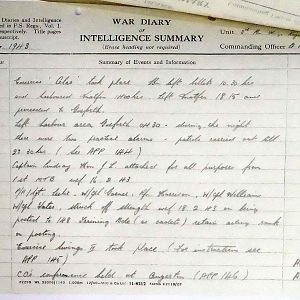 Diaries and Intelligence
in F.S. Regs., Vol. I.
respectively. Title pages
manuscript.
1943
WAR DIARY
or
INTELLIGENCE SUMMARY
(Erase heading not required)
Unit
Commanding Officer
Summary of Events and Information
Exercise took place. left billets 10.30 hrs
and harboured 1400 hrs. Left 18.15 and
proceeded to Gosforth.
Left harbour area Gosforth 0430 - during the night
there were two practical alarms - patrols carried out till
22.30 hrs (see APP 144)
Captain Lindsay Wm J.L. attached for all purposes from
1st MTB wef 16.2.43
W/Sgt Harrison, W/Cpl Williams
W/Cpl Yates, struck off strength wef 18.2.43 on being
posted to 148 Training Bde (as cadets) retain acting rank
on posting.
Exercise II took place (For instruction see
APP 145)
CO's conference held at (APP 146)